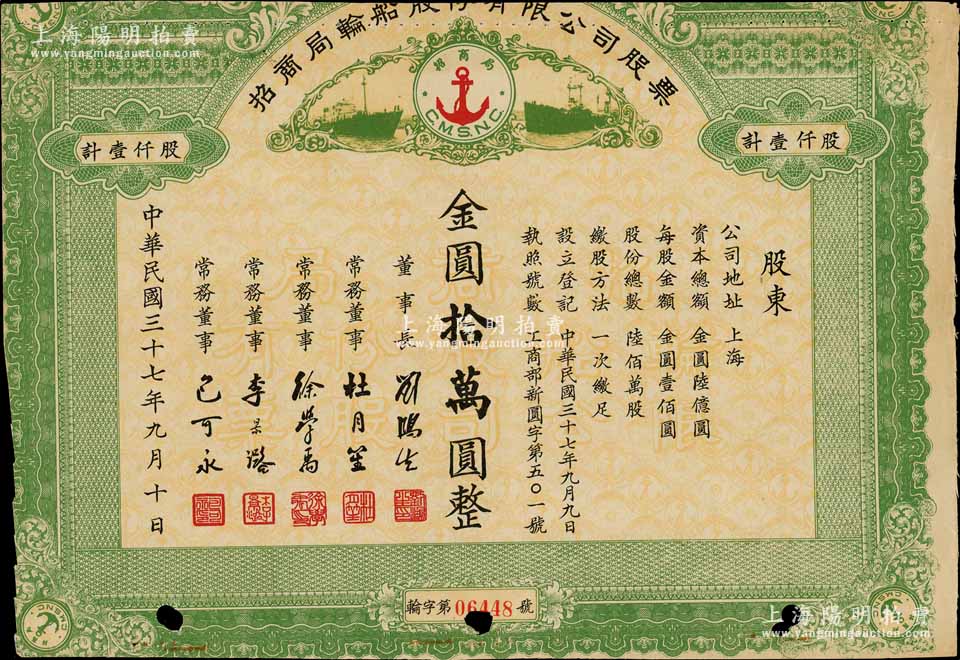 招商局輪船股份有限公司股票
招商局
C.M.S.N.C.
計壹仟股
計壹仟股
股東
公司地址 上海
資本總額 金圓陸億圓
每股金額 金圓壹佰圓
股份總數 陸佰萬股
繳股方法 一次繳足
設立登記 中華民國三十七年九月九日
執照號數 工商部新圓字第五〇一號
金圓拾萬圓整
董事長 劉鴻生
常務董事 杜月笙
常務董事 徐學禹
常務董事 李景潞
常務董事 包可永
中華民國三十七年九月十日
輪字第06448號
上海陽明拍賣
www.yangmingauction.com
上海陽明拍賣
www.yangmingauction.com
上海陽明拍賣
www.yangmingauction.com